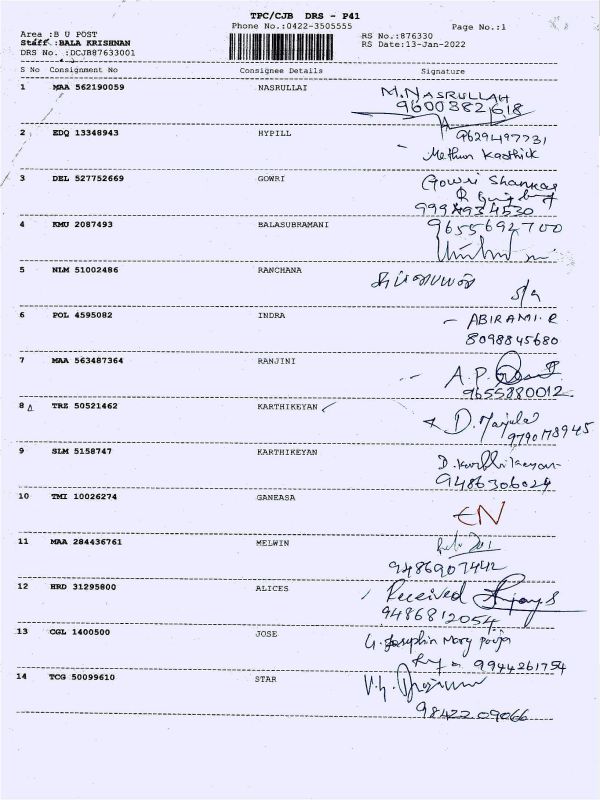 TPC/CJB DRS - P41
Phone No.:0422-3505555
Page No.:1
Area :B U POST
RS No.:876330
Staff :BALA KRISHNAN
RS Date:13-Jan-2022
DRS No. :DCJB87633001
S No Consignment No Consignee Details Signature
1 MAA 562190059 NASRULLAI M.NASRULLAH
9600382618
2 EDQ 13348943 HYPILL 9629497731
Methun Kaathick
3 DEL 527752669 GOWRI Gowri Shankar
9994934530
4 KMU 2087493 BALASUBRAMANI 9655692700
5 NLM 51002486 RANCHANA
6 POL 4595082 INDRA - ABIRAMI.R
8098845680
7 MAA 563487364 RANJINI A.P.
9655880012.
8 TRZ 50521462 KARTHIKEYAN D. Manjula
9790178945
9 SLM 5158747 KARTHIKEYAN D. Karthikeyan
9486306029
10 TMI 10026274 GANEASA EN
11 MAA 284436761 MELWIN
9486907442
12 HRD 31295800 ALICES Received
9486812054
13 CGL 1400500 JOSE Josephin Mary
9944261754
14 TCG 50099610 STAR
98422 09066